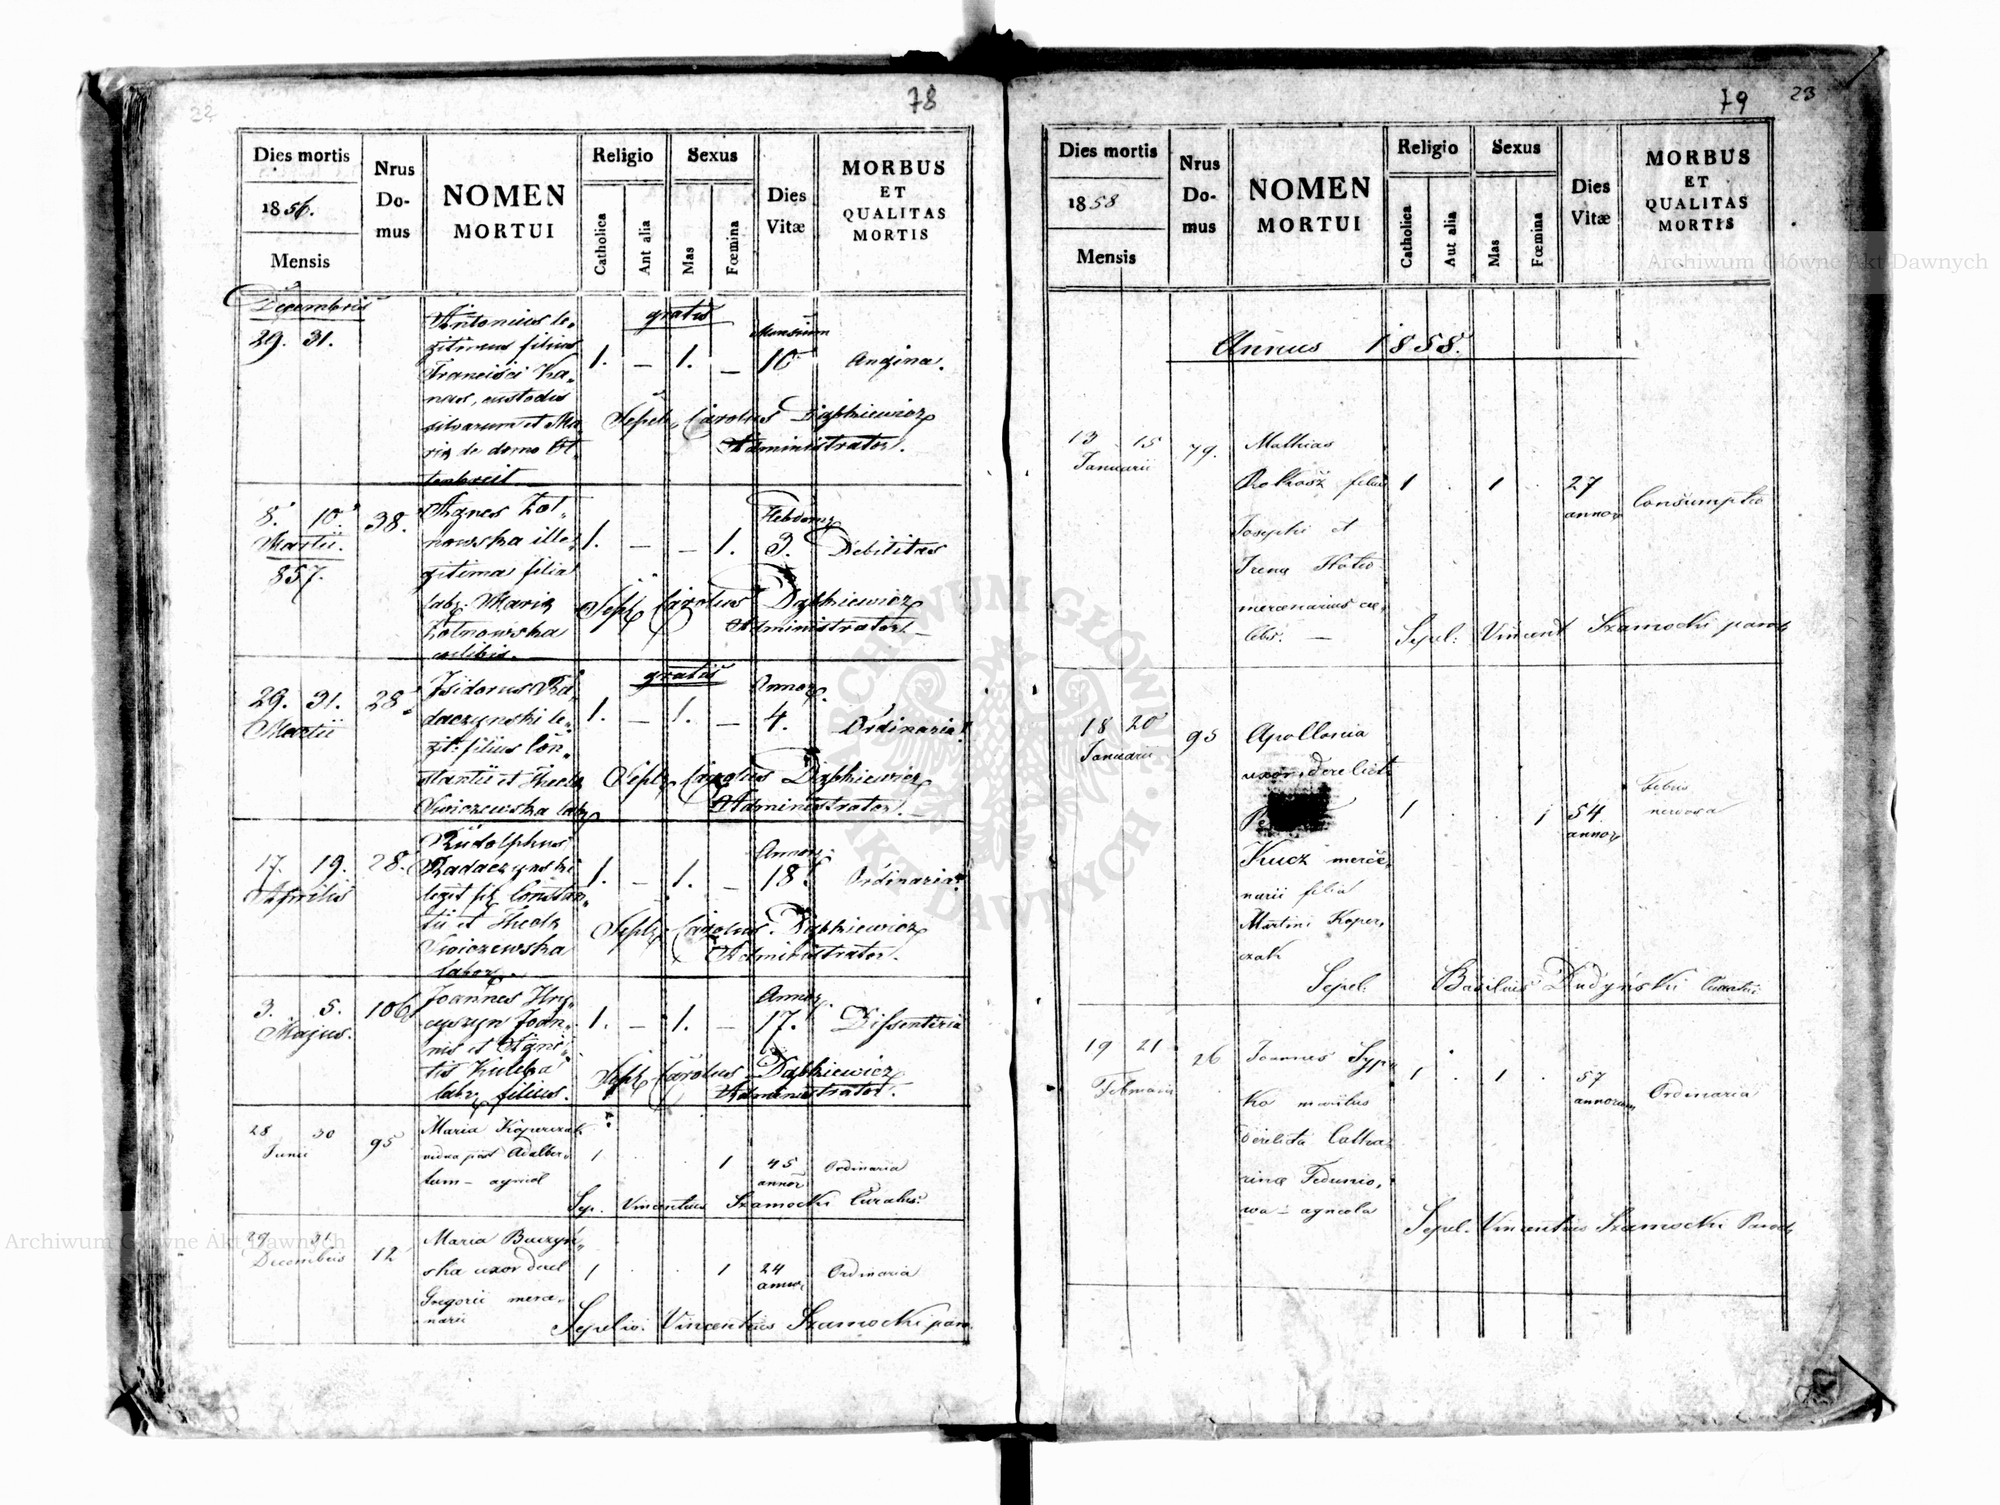 22
78
Dies mortis
1856.
Mensis
Nrus
Do-
mus
NOMEN
MORTUI
Religio
Catholica
Ant alia
Sexus
Mas
Fœmina
Dies
Vitæ
MORBUS
ET
QUALITAS
MORTIS
Decembris
29. 31.
Antonius le-
gitimus filius
Francisci Ka-
nas, custodis
silvarum et Ma-
ria de domo
gratis
1. — 1. —
Mensium
10
Angina.
Sepel. Carolus
Administrator.
8. 10.
Martii.
857.
38.
Agnes Zot-
nowska ille-
gitima filia
labr. Maria
Zotnowska
caelibis.
1. — — 1.
Hebdom.
3.
Debilitas
Sepel. Carolus
Administrator. —
29. 31.
Martii
28.
Isidorus Ra-
daczynski le-
git. filius Con-
stantii et Thecla
gratis
1. — 1. —
Annor.
4.
Ordinaria
Sepel. Carolus
Administrator. —
17. 19.
Aprilis
28.
Rudolphus
Radaczynski
legit fil. Constan-
tii et Thecla
labor.
1. — 1. —
Annor.
18.
Ordinaria
Sepel. Carolus
Administrator.
3. 5.
Majus.
106
Joannes
Joan-
nis et Agne-
tis Kuleba
labr. filius.
1. — 1. —
Annor.
17.
Dissenteria
Sepel. Carolus
Administrator.
28 30
Junii
95
Maria Koperczak
vidua post Adalber-
tum — agricol
1 . . 1
45
annor
Ordinaria
Sep. Vincentius Szamocki Curatus.
29 31
Decembris
12
Maria Buczyń-
ska uxor derel
Gregorii merce-
narii
1 . . 1
24
annor
Ordinaria
Sepelio. Vincentius Szamocki paro.
79
23
Dies mortis
1858
Mensis
Nrus
Do-
mus
NOMEN
MORTUI
Religio
Catholica
Aut alia
Sexus
Mas
Fœmina
Dies
Vitæ
MORBUS
ET
QUALITAS
MORTIS
Annus 1858.
13 - 15
Januarii
79.
Mathias
Rokosz filius
Josephi et
Irena
mercenarius cae-
lebs. —
1 . 1 .
27
annor
Consumptio
Sepel: Vincent Szamocki paroch
18 20
Januarii
95
Apollonia
uxor derelicta
Kucz merce-
narii filia
Martini Koper-
czak
1 . . 1
54
annor
Febris
nervosa
Sepel. Basilius Dudyński
19 21
Februarii
26
Joannes Syp-
ko maritus
derelicta Catha-
rina Fedunio-
wa - agricola
1 . 1 .
57
annorum
Ordinaria
Sepel. Vincentius Szamocki Paroch
Archiwum Główne Akt Dawnych
Archiwum Główne Akt Dawnych
ARCHIWUM GŁÓWNE
AKT DAWNYCH